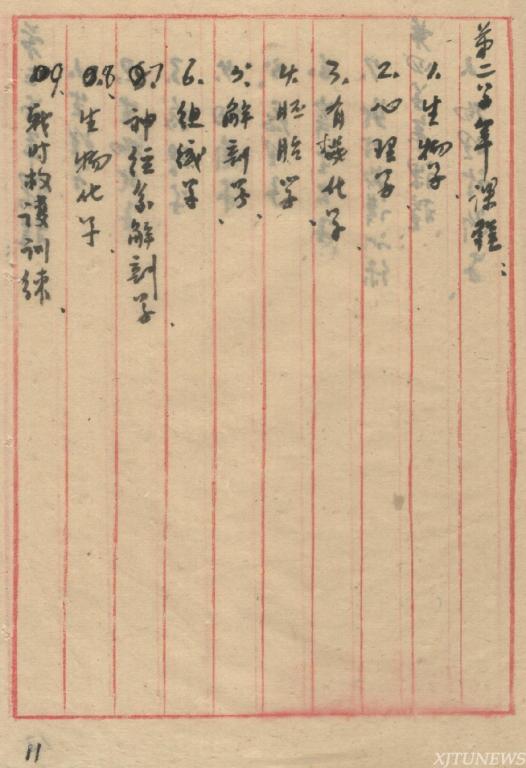 第二学年课程：
1. 生物学.
2. 心理学.
3. 有機化学.
4. 胚胎学.
5. 解剖学.
6. 组織学
7. 神经系解剖学.
8. 生物化学.
9. 戰时救護训練.
11
XJTUNEWS